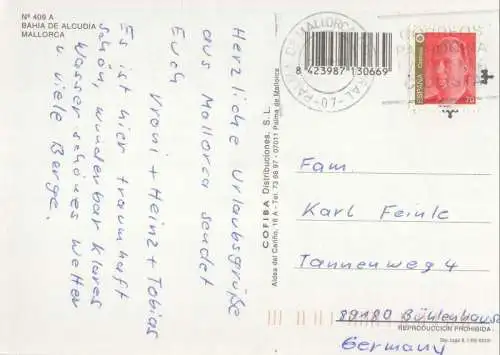 Nº 409 A
BAHIA DE ALCUDIA
MALLORCA
Herzliche Urlaubsgrüße
aus Mallorca sendet
Euch
Vroni + Heinz + Tobias
Es ist hier traumhaft
schön, wunderbar klares
Wasser schönes Wetter
u. viele Berge.
COFIBA Distribuciones, S.L.
Aldea del Cariño, 16 A - Tel. 73 68 97 - 07011 Palma de Mallorca
8 423987 130669
MALLORCA
07
CORREOS
ESPAÑA
Correos
Fam.
Karl Feinle
Tannenweg 4
89180 Bühlenhausen
REPRODUCCION PROHIBIDA
Germany